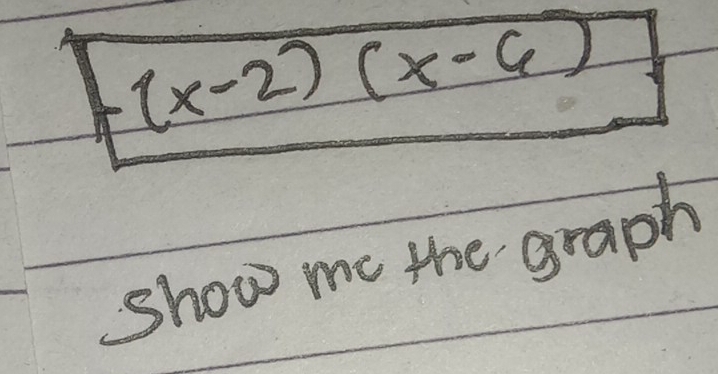 (x-2) (x-6)
show me the graph